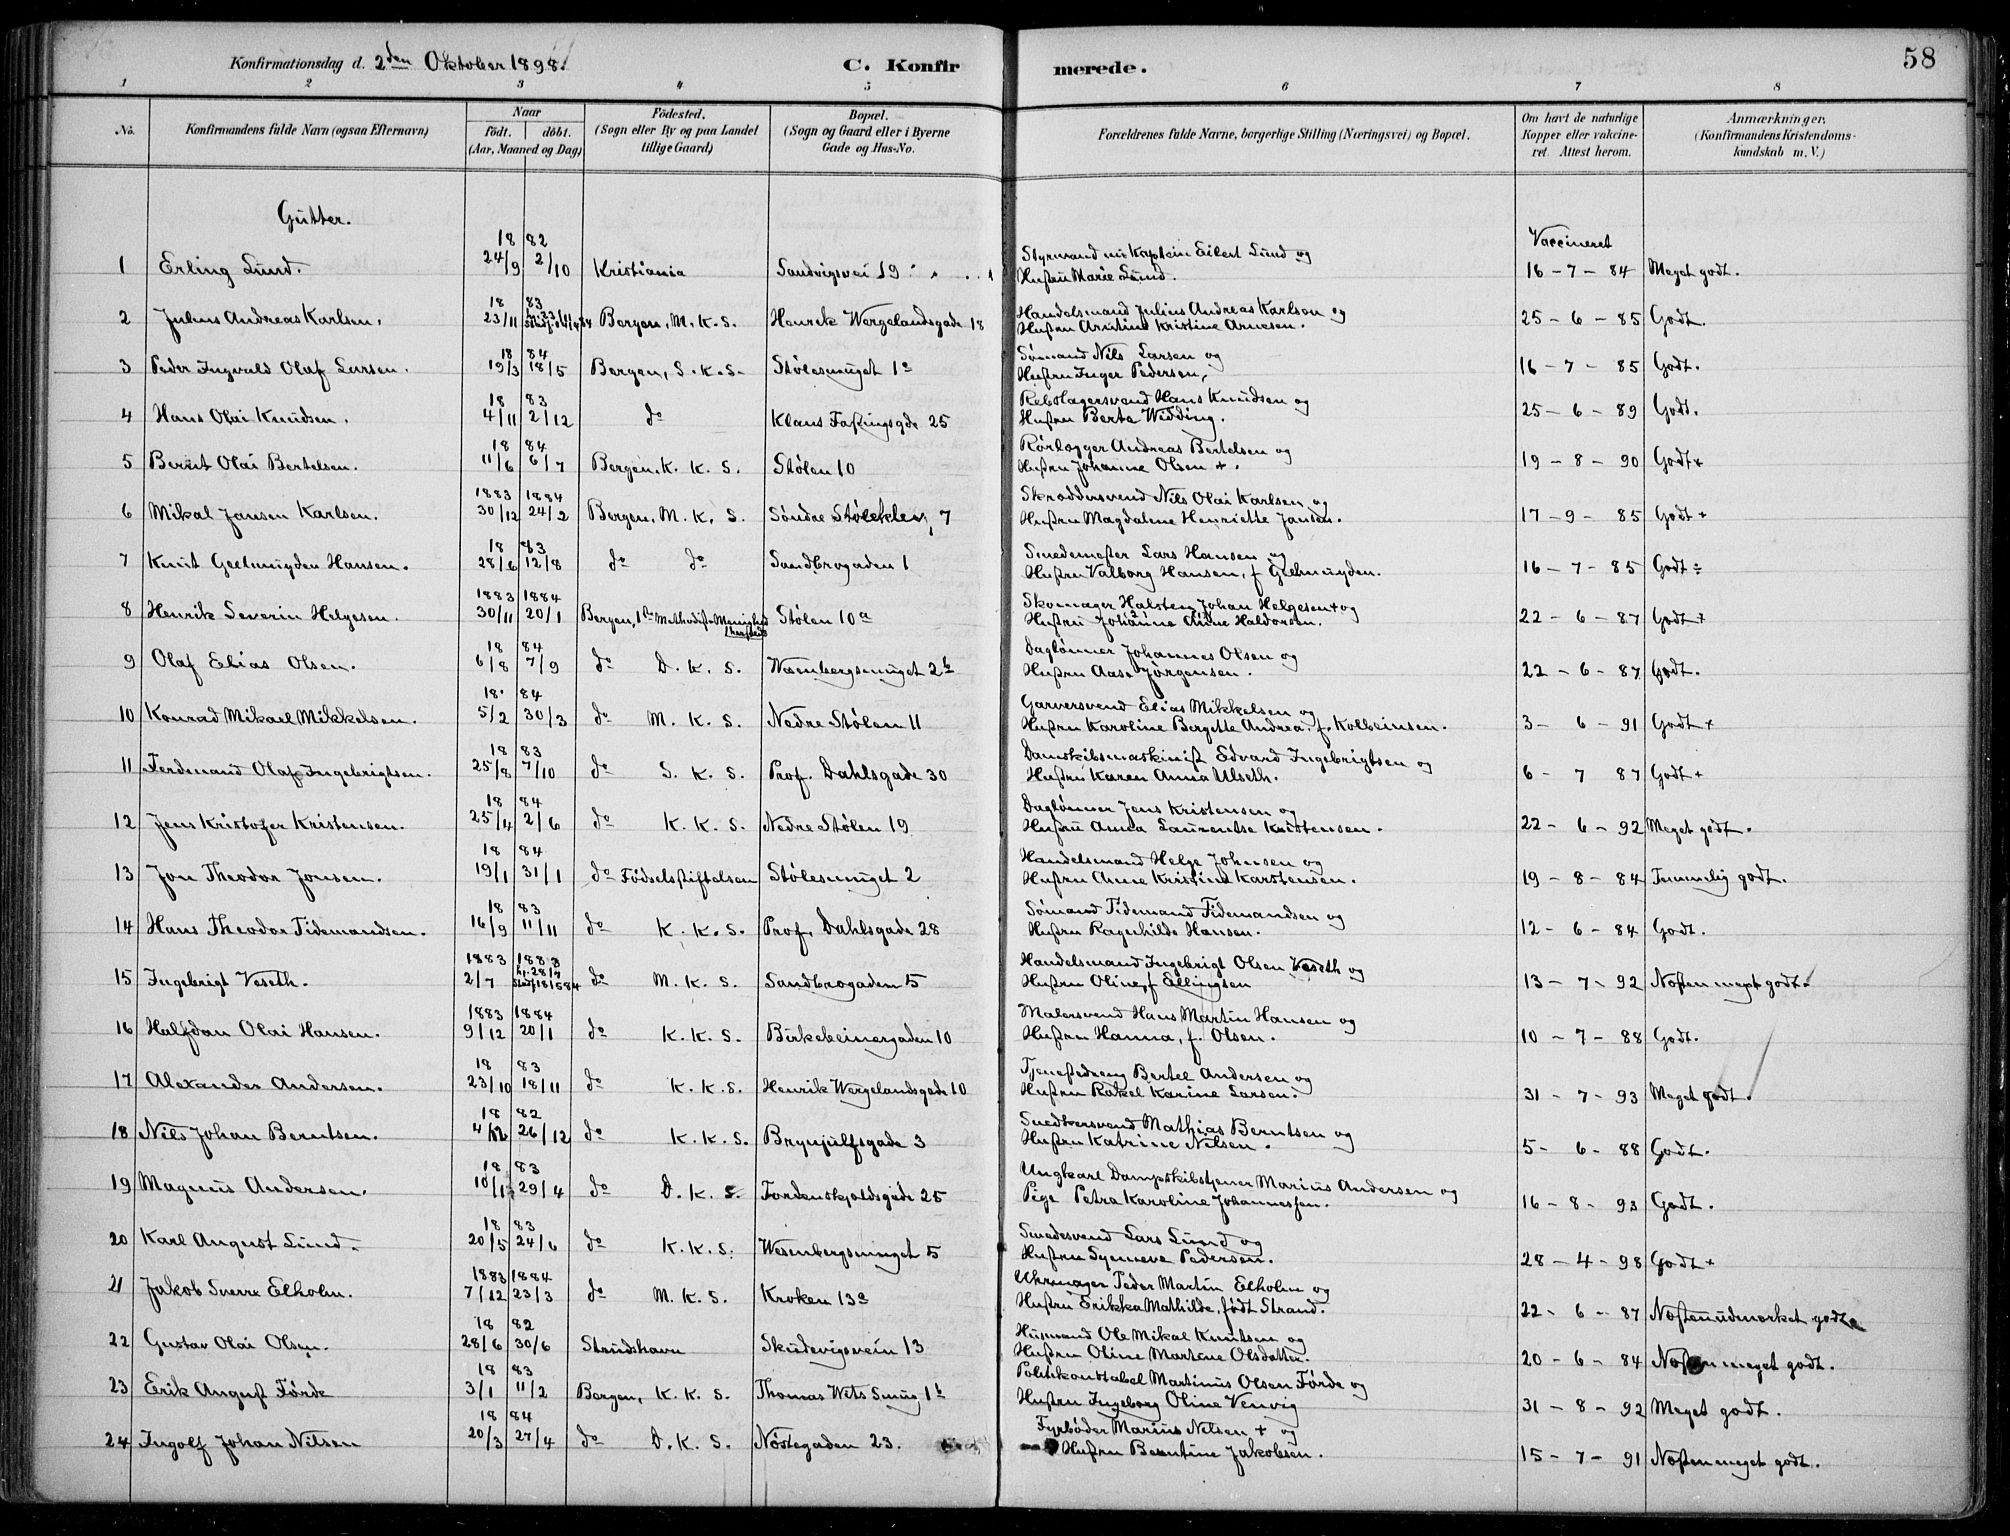 58
Konfirmationsdag d. 2den Oktober 1898.
C. Konfirmerede.
1 2 3 4 5 6 7 8
No. Konfirmandens fulde Navn (ogsaa Efternavn) Naar født. døbt. (Aar, Maaned og Dag) Fødested. (Sogn eller By og paa Landet tillige Gaard) Bopæl. (Sogn og Gaard eller i Byerne Gade og Hus-No. Forældrenes fulde Navne, borgerlige Stilling (Næringsvei) og Bopæl. Om havt de naturlige Kopper eller vakcineret. Attest herom. Anmærkninger. (Konfirmandens Kristendomskundskab m. V.)
Gutter.
Vaccineret
1 Erling Lund. 1882 24/9 2/10 Kristiania Sandvigsvei 19 Styrmand nu Kaptein Eilert Lund og Hustru Marie Lund. 16-7-84 Meget godt.
2 Julius Andreas Karlsen. 1883 23/11 Bergen, M. K. S. Henrik Wergelandsgade 18 Handelsmand Julius Andreas Karlson og Hustru Kristine Arnesen. 25-6-85 Godt.
3 Peder Ingvald Olaf Larsen. 1884 19/3 18/5 Bergen, S. K. S. Stølesmuget 1a Sømand Nils Larsen og Hustru Inger Pedersen, 16-7-85 Godt.
4 Hans Olai Knudsen. 1883 4/11 2/12 do Klaus Fastingsgde 25 Rebslagersvend Hans Knudsen og Hustru Berta Widding. 25-6-89 Godt.
5 Bernt Olai Bertelsen. 1884 11/6 6/7 Bergen. K. K. S. Stølen 10 Rørlægger Andreas Bertelsen og Hustru Johanne Olsen +. 19-8-90 Godt+
6 Mikal Jansen Karlsen. 1883 1884 30/12 24/2 Bergen, M. K. S. Søndre Støleklev, 7 Skræddersvend Nils Olai Karlsen og Hustru Magdalene Henriette Jansen. 17-9-85 Godt+
7 Knut Geelmuyden Hansen. 1883 28/6 12/8 do do Sandbrogaden 1 Smedemester Lars Hansen og Hustru Valborg Hansen, f Geelmuyden. 16-7-85 Godt÷
8 Henrik Severin Helgesen. 1883 1884 30/11 20/1 Bergen, 1ste Methodist-Menighed Stølen 10a Skomager Halsten Johan Helgesen+ og Hustru Johanne Anne Haldorsen. 22-6-87 Godt+
9 Olaf Elias Olsen. 1884 6/8 7/9 do D. K. S. Wesenbergsmuget 2b Dagløнner Johannes Olsen og Hustru Aase Jørgensen. 22-6-87 Godt.
10 Konrad Mikael Mikkelsen. 1884 5/2 30/3 do M. K. S. Nedre Stølen 11 Garversvend Elias Mikkelsen og Hustru Karoline Bergitte Andrea, f. Kolbeinsen. 3-6-91 Godt+
11 Ferdinand Olaf Ingebrigtsen. 1883 25/8 7/10 do S. K. S. Prof. Dahlsgade 30 Damskibsmaskinist Edvard Ingebrigtsen og Hustru Karen Anna Ulseth. 6-7 87 Godt+
12 Jens Kristofer Kristensen. 1884 25/4 2/6 do K. K. S. Nedre Stølen 19 Dagløнner Jens Kristensen og Hustru Anna Laurentse Kristensen. 22-6-92 Meget godt.
13 Jon Theodor Jonsen. 1884 19/1 31/1 do Fødselsstiftelsen Stølesmuget 2 Handelsmand Helge Johnsen og Hustru Anne Kristine Karstensen. 19-8-84 Temmelig godt.
14 Hans Theodor Tidemandsen. 1883 16/9 11/11 do K. K. S. Prof. Dahlsgade 28 Sømand Tidemand Tidemandsen og Hustru Ragnhilde Hansen. 12-6-84 Godt.
15 Ingebrigt Veseth. 1883 1883 2/7 hj. 28/7 stadf. 18/5 84 do M. K. S. Sandbrogaden 5 Handelsmand Ingebrigt Olsen Veseth og Hustru Oline, f Ellingsen 13-7-92 Næsten meget godt.
16 Halfdan Olai Hansen. 1883 1884 9/12 20/1 do K. K. S. Birkebeinergaden 10 Malersvend Hans Martin Hansen og Hustru Hanna, f. Olsen. 10-7-88 Godt.
17 Alexander Andersen. 1883 23/10 18/11 do K. K. S. Henrik Wergelandsgade 10 Tjenestedreng Bertel Andersen og Hustru Rakel Karine Larsen. 31-7-93 Meget godt.
18 Nils Johan Berntsen. 1882 4/12 26/12 do K. K. S. Brynjulfsgade 3 Snedkersvend Mathias Berntsen og Hustru Katrine Nilsen. 5-6-88 Godt.
19 Magnus Andersen. 1883 10/1 29/4 do D. K. S Tordenskjoldsgade 25 Ungkarl Dampskibstjener Marius Andersen og Pige Petra Karoline Johannessen. 16-8-93 Godt.
20 Karl August Lund. 1883 20/5 24/6 do K. K. S. Wesenbergsmuget 5 Smedesvend Lars Lund og Hustru Synneve Pedersen. 28-4-98 Godt+
21 Jakob Sverre Elholm. 1883 1884 7/12 23/3 do M. K. S. Kroken 13a Uhrmager Peder Martin Elholm og Hustru Erikka Mathilde, født Strand. 22-6-87 Næsten udmærket godt.
22 Gustav Olai Olsen. 1882 28/6 30/6 Strudshavn Skudevigsveien 13 Husmand Ole Mikal Knutsen og Hustru Oline Martine Olsdatter. 20-6-84 Næsten meget godt.
23 Erik August Førde 1883 3/1 11/2 Bergen, K. K. S. Thomas Wits Smug 1b Politikonstabel Martinus Olsen Førde og Hustru Ingeborg Oline Venvig 31-8-92 Meget godt.
24 Ingolf Johan Nilsen 1884 20/3 27/4 do D. K. S. Nøstegaden 23. Fyrbøder Marius Nilsen + og Hustru Berntine Jakobsen. 15-7-91 Næsten meget godt.